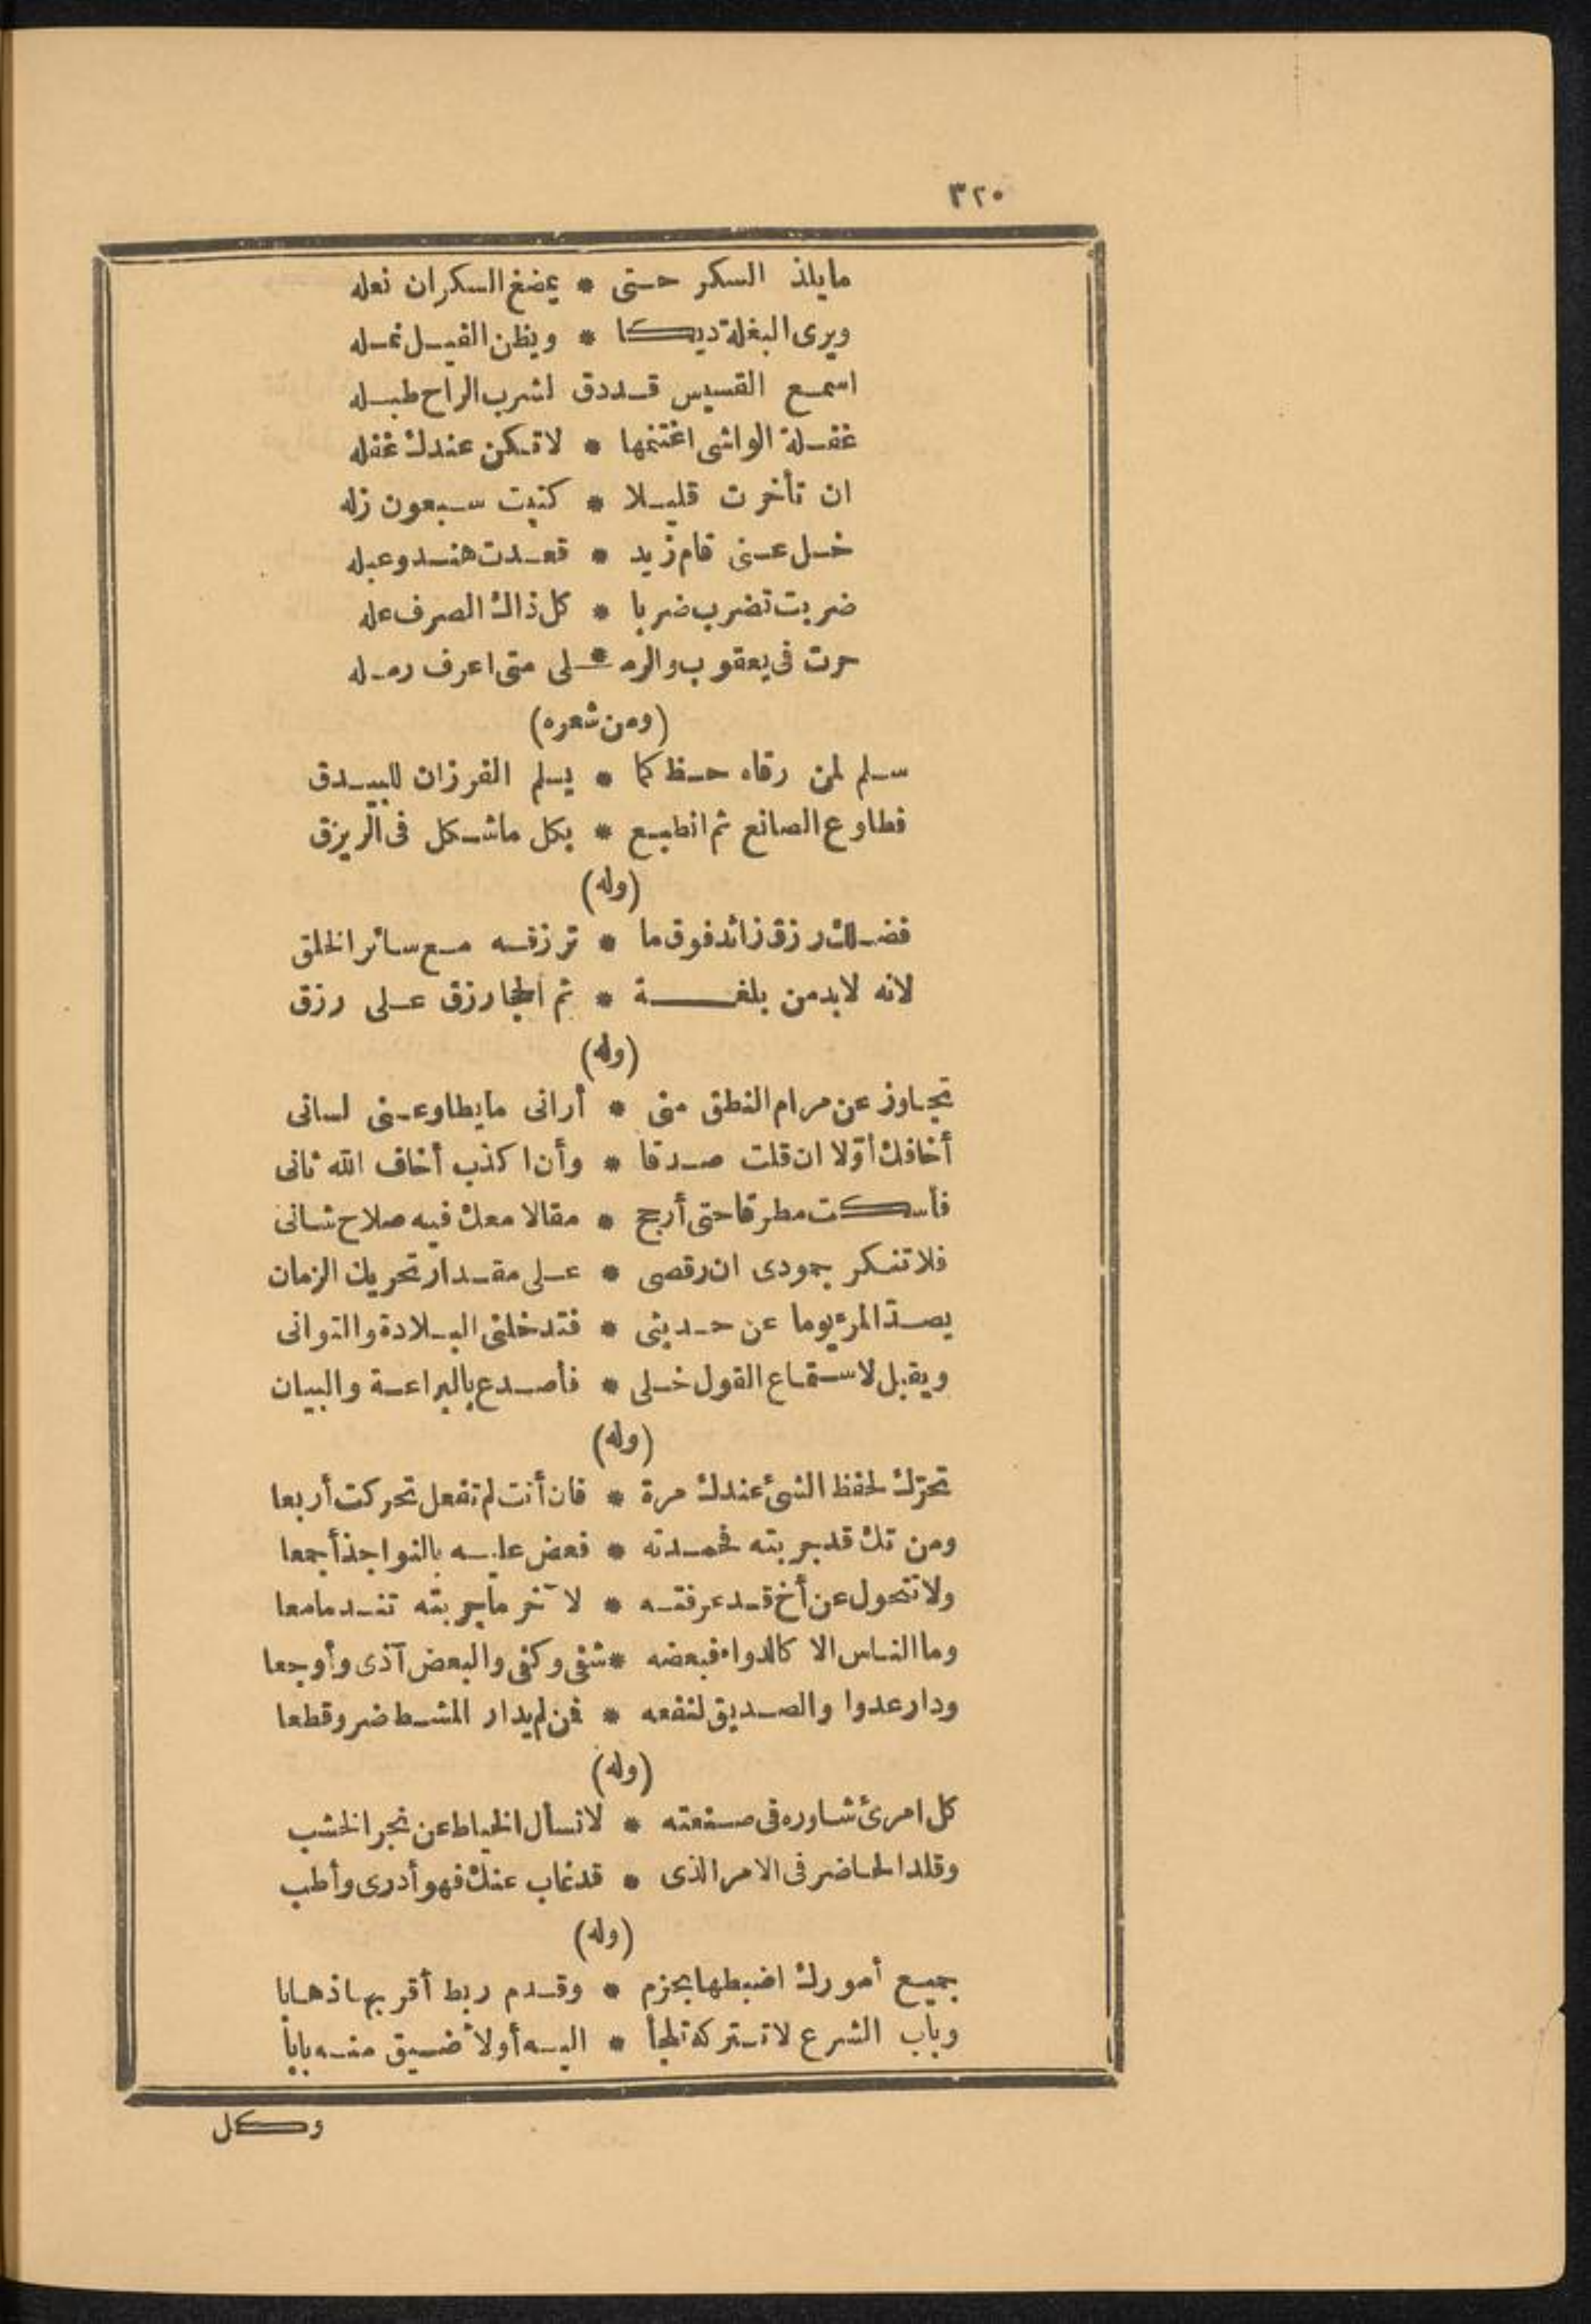 ٣٢٠
مايلذ السكر حتى * يمضغ السكران نعله
ويرى البغلة ديكا * ويظن الفيل نمله
اسمع القسيس قددق لشرب الراح طبله
غفلة الواشى اغتنمها * لاتكن عندك غفله
ان تأخرت قليلا * كتبت سبعون زله
خل عنى قام زيد * قعدت هند وعبله
ضربت تضرب ضربا * كل ذاك الصرف عله
حرت فى يعقوب والرمـ * ـلى متى اعرف رمله
(ومن شعره)
سلم لمن رقاه حظ كما * يسلم الفرزان للبيدق
فطاوع الصانع ثم انطبع * بكل ماشكل فى الريزق
(وله)
فضلك رزق زائد فوق ما * ترزقه مع سائر الخلق
لانه لابد من بلغة * ثم الحجا رزق على رزق
(وله)
تجاوز عن مرام النطق منى * أرانى مايطاوعنى لسانى
أخافك أولا ان قلت صدقا * وأن اكذب أخاف الله ثانى
فأسكت مطرقا حتى أرجح * مقالا معك فيه صلاح شانى
فلا تنكر جمودى ان رقصى * على مقدار تحريك الزمان
يصد المرء يوما عن حديثى * فتدخلنى البلادة والتوانى
ويقبل لاستماع القول خلى * فأصدع بالبراعة والبيان
(وله)
تحرك لحفظ الشئ عندك مرة * فان أنت لم تفعل تحركت أربعا
ومن تك قد جربته فحمدته * فعض عليه بالنواجذ أجمعا
ولا تتحول عن أخ قد عرفته * لآخر ماجربته تندما معا
وما الناس الا كالدواء فبعضه * شفى وكفى والبعض آذى وأوجعا
ودار عدوا والصديق لنفعه * فمن لم يدار المشط ضر وقطعا
(وله)
كل امرئ شاوره فى صنعته * لا تسأل الخياط عن نجر الخشب
وقلد الحاضر فى الامر الذى * قد غاب عنك فهو أدرى وأطب
(وله)
جميع أمورك اضبطها بحزم * وقدم ربط أقربها ذهابا
وباب الشرع لا تتركه تلجأ * اليه أولا ضيق منه بابا
وكل